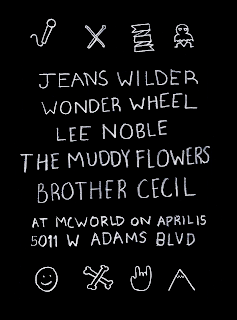 JEANS WILDER
WONDER WHEEL
LEE NOBLE
THE MUDDY FLOWERS
BROTHER CECIL
AT MCWORLD ON APRIL 15
5011 W ADAMS BLVD